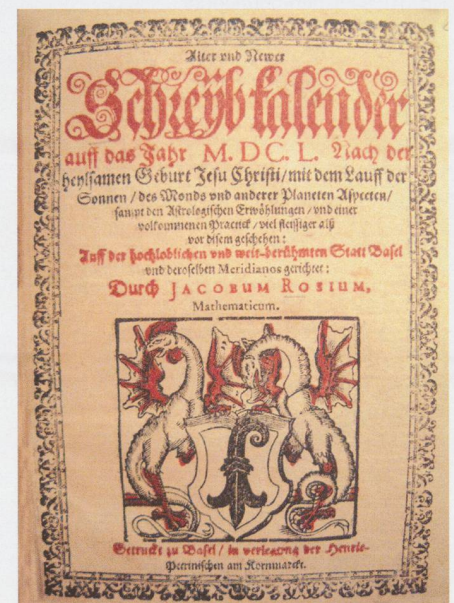 Alter vnd Newer
Schreyb kalender
auff das Jahr M. DC. L. Nach der
heylsamen Geburt Jesu Christi / mit dem Lauff der
Sonnen / des Monds vnd anderer Planeten Aspecten /
sampt den Astrologischen Erwöhlungen / vnd einer
volkommenen Practick / viel fleissiger alß
vor disem geschehen:
Auff der hochloblichen vnd weit-berühmten Statt Basel
vnd deroselben Meridianos gerichtet:
Durch JACOBUM ROSIUM,
Mathematicum.
Getruckt zu Basel / in verlegung der Henric-
Petrinischen am Kornmarckt.